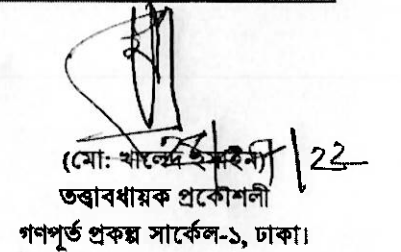 (মো: খালেদ হুসাইন)
তত্ত্বাবধায়ক প্রকৌশলী
গণপূর্ত প্রকল্প সার্কেল-১, ঢাকা।